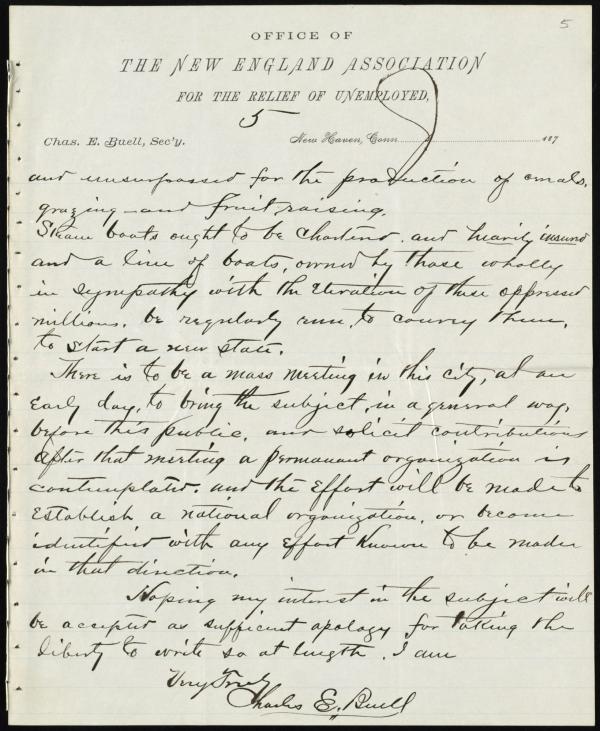 5
OFFICE OF
THE NEW ENGLAND ASSOCIATION
FOR THE RELIEF OF UNEMPLOYED,
5
Chas. E. Buell, Sec'y. New Haven, Conn. 187
and unsurpassed for the production of cereals,
grazing and fruit raising.
Steam boats ought to be chartered, and heavily insured
and a line of boats, owned by those wholly
in sympathy with the elevation of these oppressed
millions, be regularly run, to convey them,
to start a new state.
There is to be a mass meeting in this city, at an
early day, to bring the subject, in a general way,
before this public, and solicit contributions
after that meeting a permanant organization is
contemplated, and the effort will be made to
establish a national organization, or become
identified with any effort known to be made
in that direction.
Hoping my interest in the subject will
be accepted as sufficient apology for taking the
liberty to write so at length, I am
Very Truly
Charles E. Buell